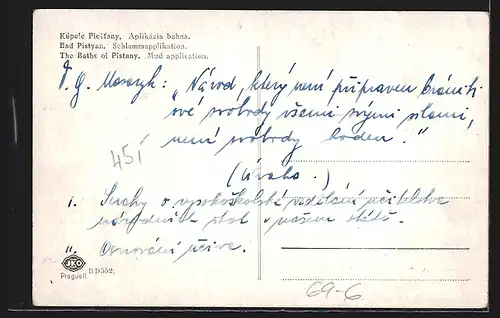 Kúpele Piešťany. Aplikácia bahna.
Bad Pistyan. Schlammapplikation.
The Baths of Pistany. Mud application.
T. G. Masaryk: „Národ, který není připraven brániti
své svobody všemi svými silami,
není svobody hoden."
(Úvaha.)
451
I. Snahy o vysokoškolské vzdělání učitelstva
národních škol v našem státě.
II. Osnování učiva.
JKO
Prague II
B D552.
69-6